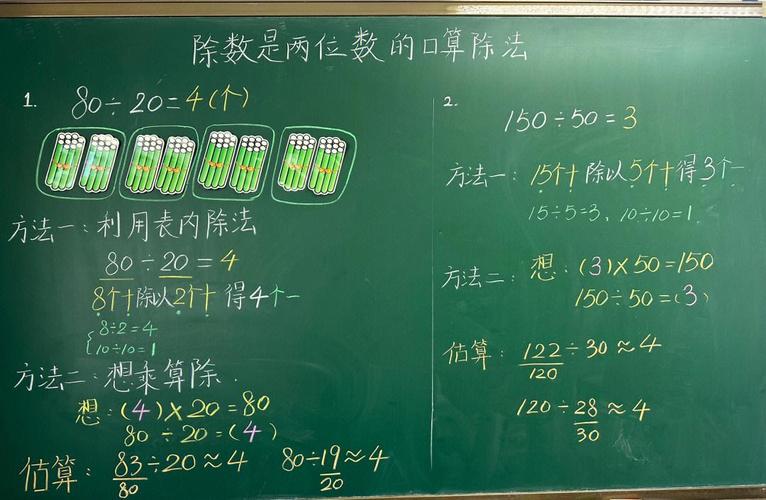 除数是两位数的口算除法
1. 80÷20=4(个)
方法一:利用表内除法
80÷20=4
8个十除以2个十 得4个一
8÷2=4
10÷10=1
方法二:想乘算除.
想:(4)×20=80
80÷20=(4)
估算: 83÷20≈4 80÷19≈4
80 20
2. 150÷50=3
方法一: 15个十除以5个十得3个一
15÷5=3, 10÷10=1.
方法二: 想:(3)×50=150
150÷50=(3)
估算: 122÷30≈4
120
120÷28≈4
30